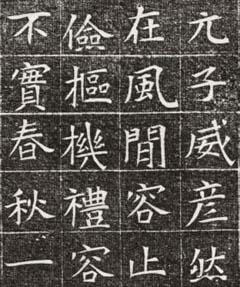 元子威彦然
在風間容止
儉樞機禮容
不實春秋一